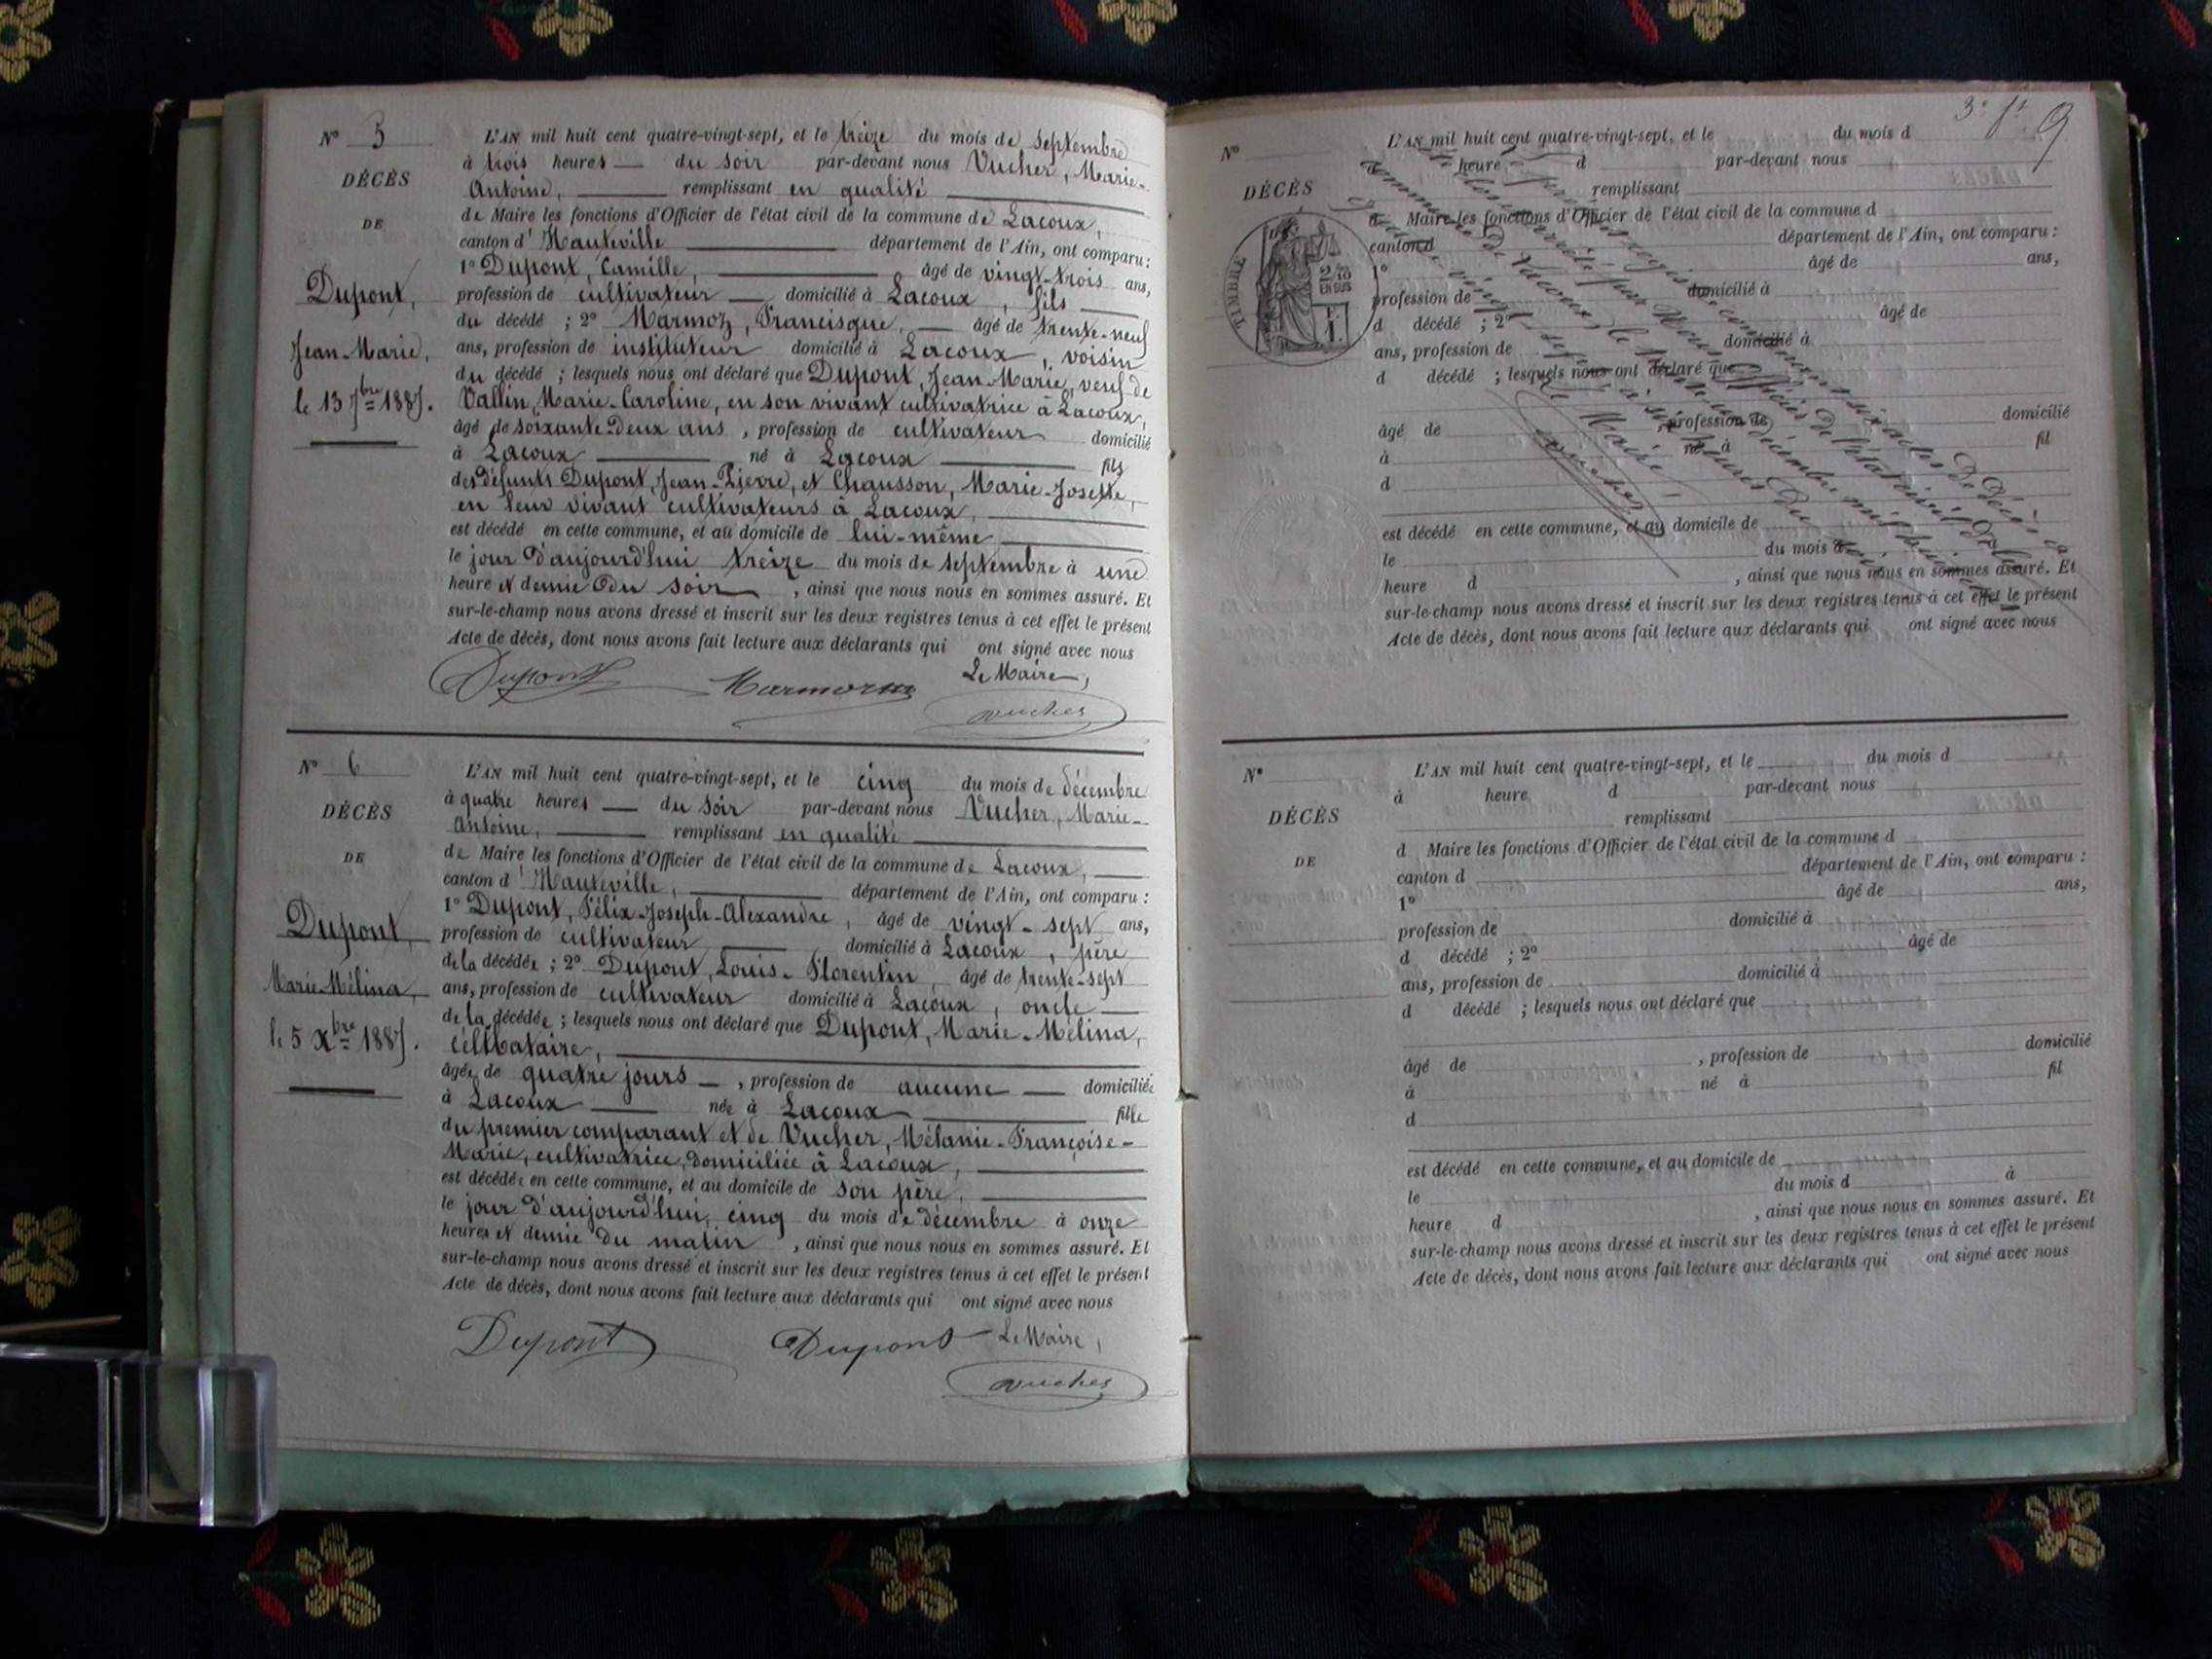 N° 5
DÉCÈS
DE
Dupont,
Jean-Marie,
le 13 7bre 1887.
L'AN mil huit cent quatre-vingt-sept, et le treize du mois de septembre
à trois heures — du soir par-devant nous Vucher, Marie-
Antoine, remplissant en qualité
de Maire les fonctions d'Officier de l'état civil de la commune de Lacoux,
canton d'Hauteville département de l'Ain, ont comparu :
1° Dupont, Camille, âgé de vingt-trois ans,
profession de cultivateur — domicilié à Lacoux, fils
du décédé ; 2° Marmoz, Francisque, — âgé de trente-neuf
ans, profession de instituteur domicilié à Lacoux, voisin
du décédé ; lesquels nous ont déclaré que Dupont, Jean-Marie, veuf de
Vallin, Marie-Caroline, en son vivant cultivatrice à Lacoux,
âgé de soixante-deux ans, profession de cultivateur domicilié
à Lacoux né à Lacoux fils
des défunts Dupont, Jean-Pierre, et Chausson, Marie-Josette,
en leur vivant cultivateurs à Lacoux,
est décédé en cette commune, et au domicile de lui-même
le jour d'aujourd'hui treize du mois de septembre à une
heure et demie du soir, ainsi que nous nous en sommes assuré. Et
sur-le-champ nous avons dressé et inscrit sur les deux registres tenus à cet effet le présent
Acte de décès, dont nous avons fait lecture aux déclarants qui ont signé avec nous
Le Maire,
Dupont Marmoz Vucher
N° 6
DÉCÈS
DE
Dupont,
Marie-Mélina,
le 5 Xbre 1887.
L'AN mil huit cent quatre-vingt-sept, et le cinq du mois de décembre
à quatre heures — du soir par-devant nous Vucher, Marie-
Antoine, remplissant en qualité
de Maire les fonctions d'Officier de l'état civil de la commune de Lacoux,
canton d'Hauteville, département de l'Ain, ont comparu :
1° Dupont, Félix-Joseph-Alexandre, âgé de vingt-sept ans,
profession de cultivateur domicilié à Lacoux, père
de la décédée ; 2° Dupont, Louis-Florentin, âgé de trente-sept
ans, profession de cultivateur domicilié à Lacoux, oncle
de la décédée ; lesquels nous ont déclaré que Dupont, Marie-Mélina,
célibataire,
âgée de quatre jours —, profession de aucune — domiciliée
à Lacoux née à Lacoux fille
du premier comparant et de Vucher, Mélanie-Françoise-
Marie, cultivatrice, domiciliée à Lacoux,
est décédée en cette commune, et au domicile de son père,
le jour d'aujourd'hui, cinq du mois de décembre à onze
heures et demie du matin, ainsi que nous nous en sommes assuré. Et
sur-le-champ nous avons dressé et inscrit sur les deux registres tenus à cet effet le présent
Acte de décès, dont nous avons fait lecture aux déclarants qui ont signé avec nous
Dupont Dupont Le Maire,
Vucher
9
N°
DÉCÈS
TIMBRE
2/10
EN SUS
L'AN mil huit cent quatre-vingt-sept, et le du mois d
heure d par-devant nous
remplissant
d Maire les fonctions d'Officier de l'état civil de la commune d
canton d département de l'Ain, ont comparu :
1° âgé de ans,
profession de domicilié à
d décédé ; 2° âgé de
ans, profession de domicilié à
d décédé ; lesquels nous ont déclaré que
âgé de profession de domicilié
à né à fil
d
est décédé en cette commune, et au domicile de
le du mois d à
heure d , ainsi que nous nous en sommes assuré. Et
sur-le-champ nous avons dressé et inscrit sur les deux registres tenus à cet effet le présent
Acte de décès, dont nous avons fait lecture aux déclarants qui ont signé avec nous
registre contenant six actes de décès
arrêté par Nous Officier de l'état civil de la
commune de Lacoux, le décembre mil huit cent
quatre-vingt-sept à six heures du soir
Le Maire,
Vucher
N°
DÉCÈS
DE
L'AN mil huit cent quatre-vingt-sept, et le du mois d
à heure d par-devant nous
remplissant
d Maire les fonctions d'Officier de l'état civil de la commune d
canton d département de l'Ain, ont comparu :
1° âgé de ans,
profession de domicilié à
d décédé ; 2° âgé de
ans, profession de domicilié à
d décédé ; lesquels nous ont déclaré que
âgé de , profession de domicilié
à né à fil
d
est décédé en cette commune, et au domicile de
le du mois d à
heure d , ainsi que nous nous en sommes assuré. Et
sur-le-champ nous avons dressé et inscrit sur les deux registres tenus à cet effet le présent
Acte de décès, dont nous avons fait lecture aux déclarants qui ont signé avec nous